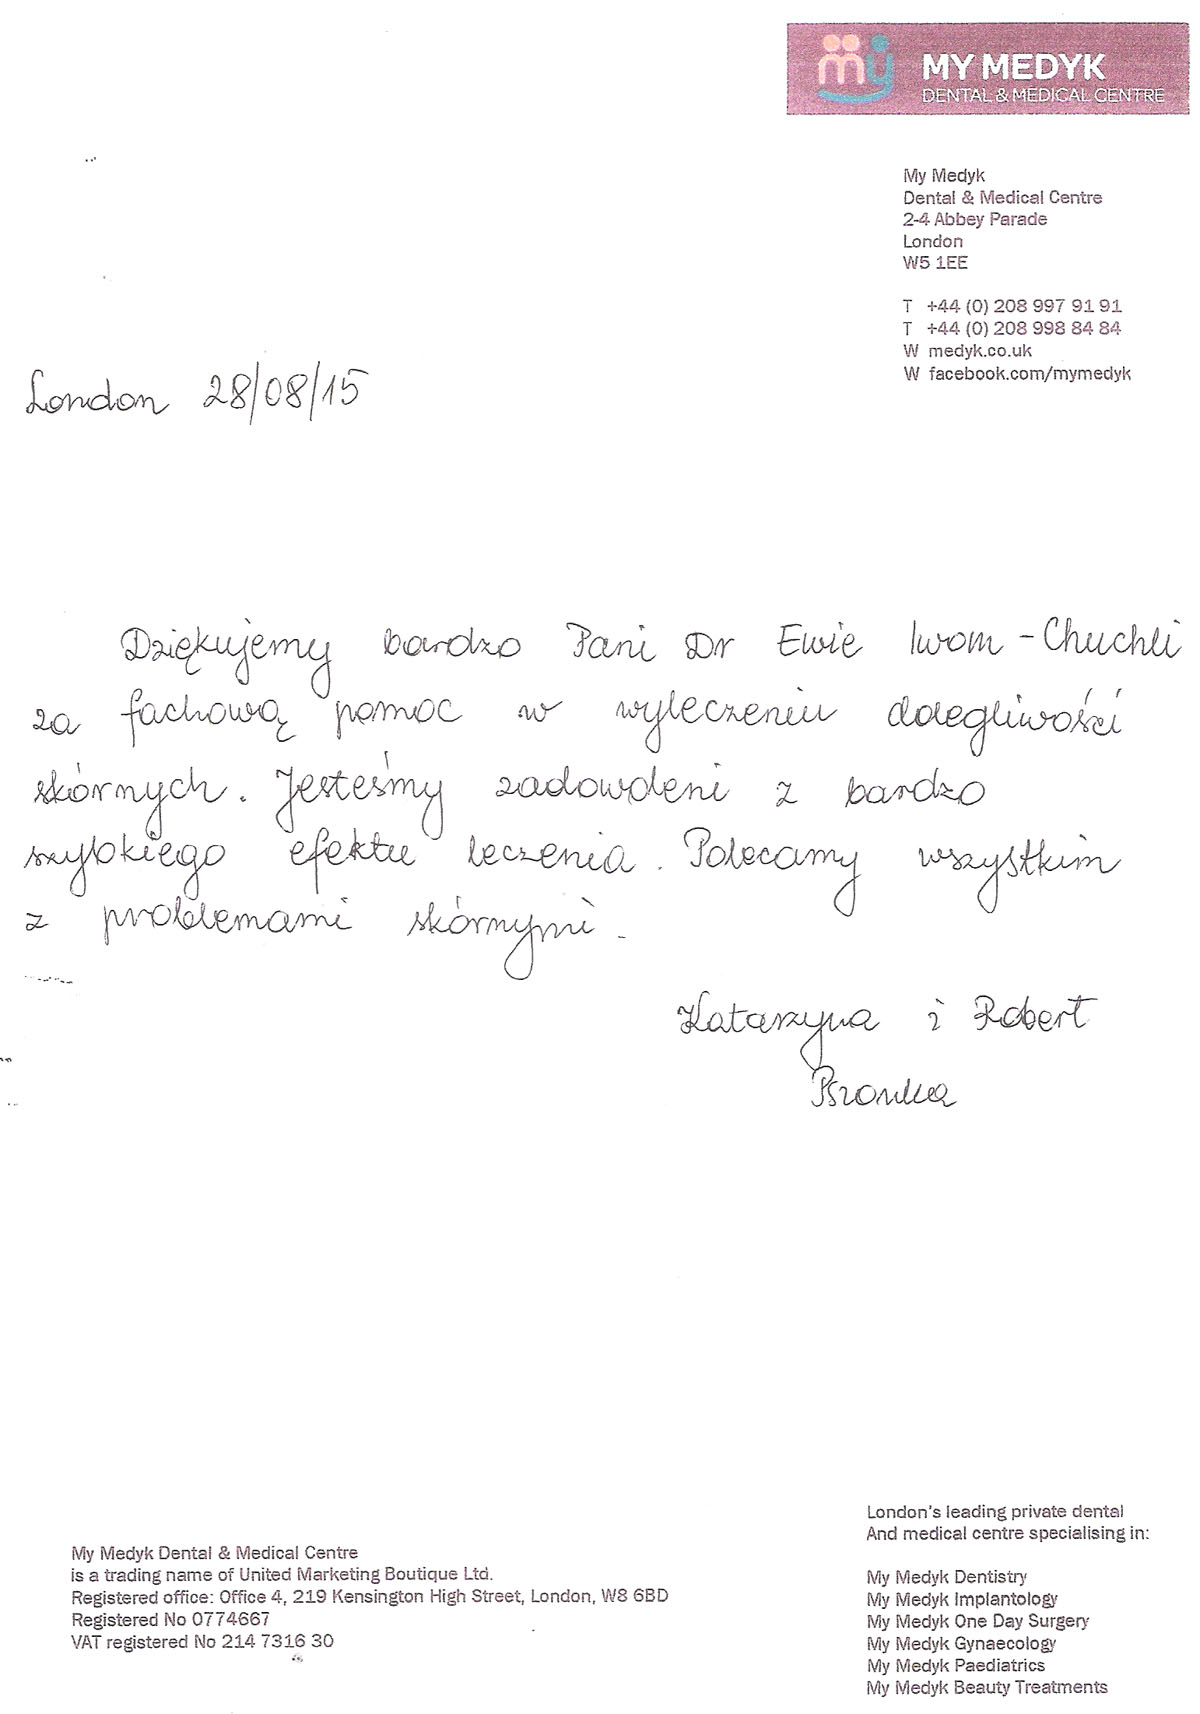 my MY MEDYK
DENTAL & MEDICAL CENTRE
My Medyk
Dental & Medical Centre
2-4 Abbey Parade
London
W5 1EE
T +44 (0) 208 997 91 91
T +44 (0) 208 998 84 84
W medyk.co.uk
W facebook.com/mymedyk
London 28/08/15
Dziękujemy bardzo Pani Dr Ewie Iwom-Chuchli
za fachową pomoc w wyleczeniu dolegliwości
skórnych. Jesteśmy zadowoleni z bardzo
szybkiego efektu leczenia. Polecamy wszystkim
z problemami skórnymi.
Katarzyna i Robert
My Medyk Dental & Medical Centre
is a trading name of United Marketing Boutique Ltd.
Registered office: Office 4, 219 Kensington High Street, London, W8 6BD
Registered No 0774667
VAT registered No 214 7316 30
London's leading private dental
And medical centre specialising in:
My Medyk Dentistry
My Medyk Implantology
My Medyk One Day Surgery
My Medyk Gynaecology
My Medyk Paediatrics
My Medyk Beauty Treatments